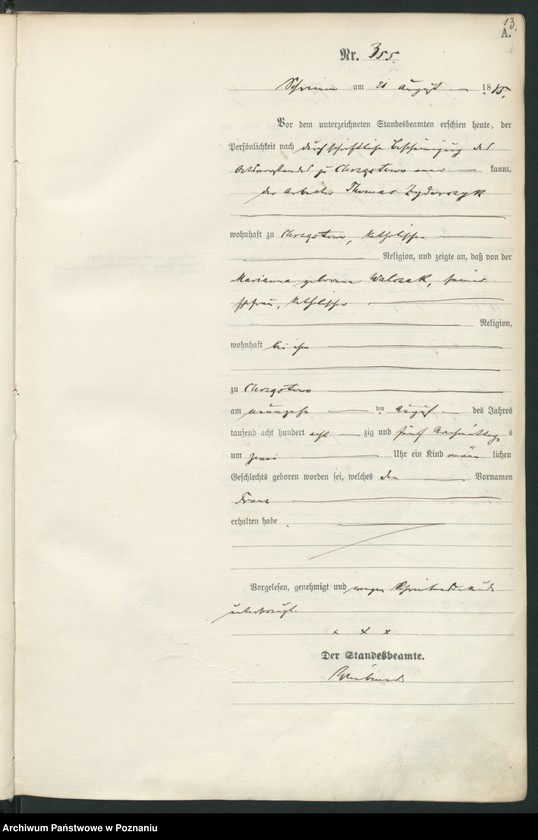 13
A.
Nr. 355.
Schrimm am 21 August 1885.
Vor dem unterzeichneten Standesbeamten erschien heute, der
Persönlichkeit nach durch schriftliche Bescheinigung des
Ortsvorstandes zu Chrząstowo kannt,
der Arbeiter Thomas
wohnhaft zu Chrząstowo, katholischer
Religion, und zeigte an, daß von der
Marianna geborene Walczak, seiner
Ehefrau, katholischer
Religion,
wohnhaft bei ihm
zu Chrząstowo
am neunzehn ten August des Jahres
tausend acht hundert acht zig und fünf Nachmittags
um zwei Uhr ein Kind männ lichen
Geschlechts geboren worden sei, welches den Vornamen
Franz
erhalten habe.
Vorgelesen, genehmigt und wegen
unterkreuzt.
x x x
Der Standesbeamte.
Archiwum Państwowe w Poznaniu